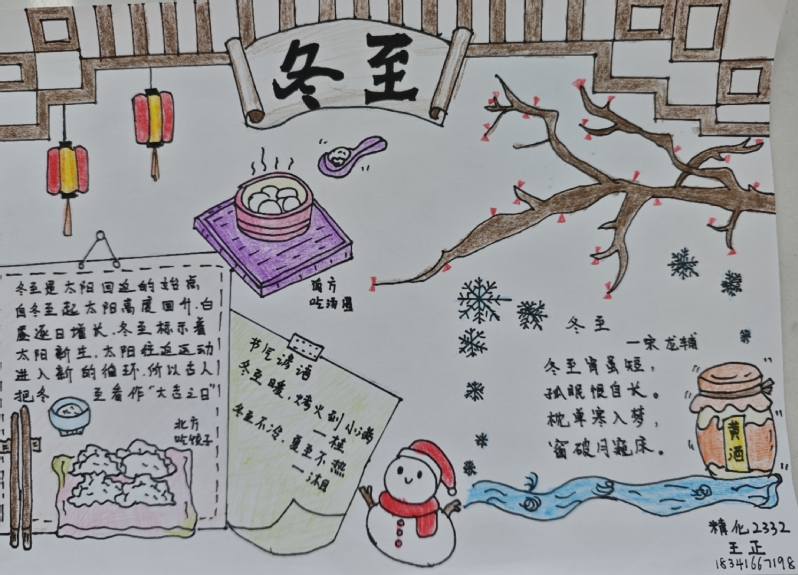 冬至
南方
吃汤圆
冬至是太阳回返的始点
自冬至起太阳高度回升,白
昼逐日增长,冬至标示着
太阳新生,太阳往返运动
进入新的循环,所以古人
把冬 至看作"大吉之日"
北方
吃饺子
节气谚语
冬至暖,烤火到小满
一桂
冬至不冷,夏至不热
一湘
冬至
一宋 龙辅
冬至宵虽短,
孤眠恨自长。
枕单寒入梦,
窗破月窥床。
黄酒
精化2332
王正
18341667198